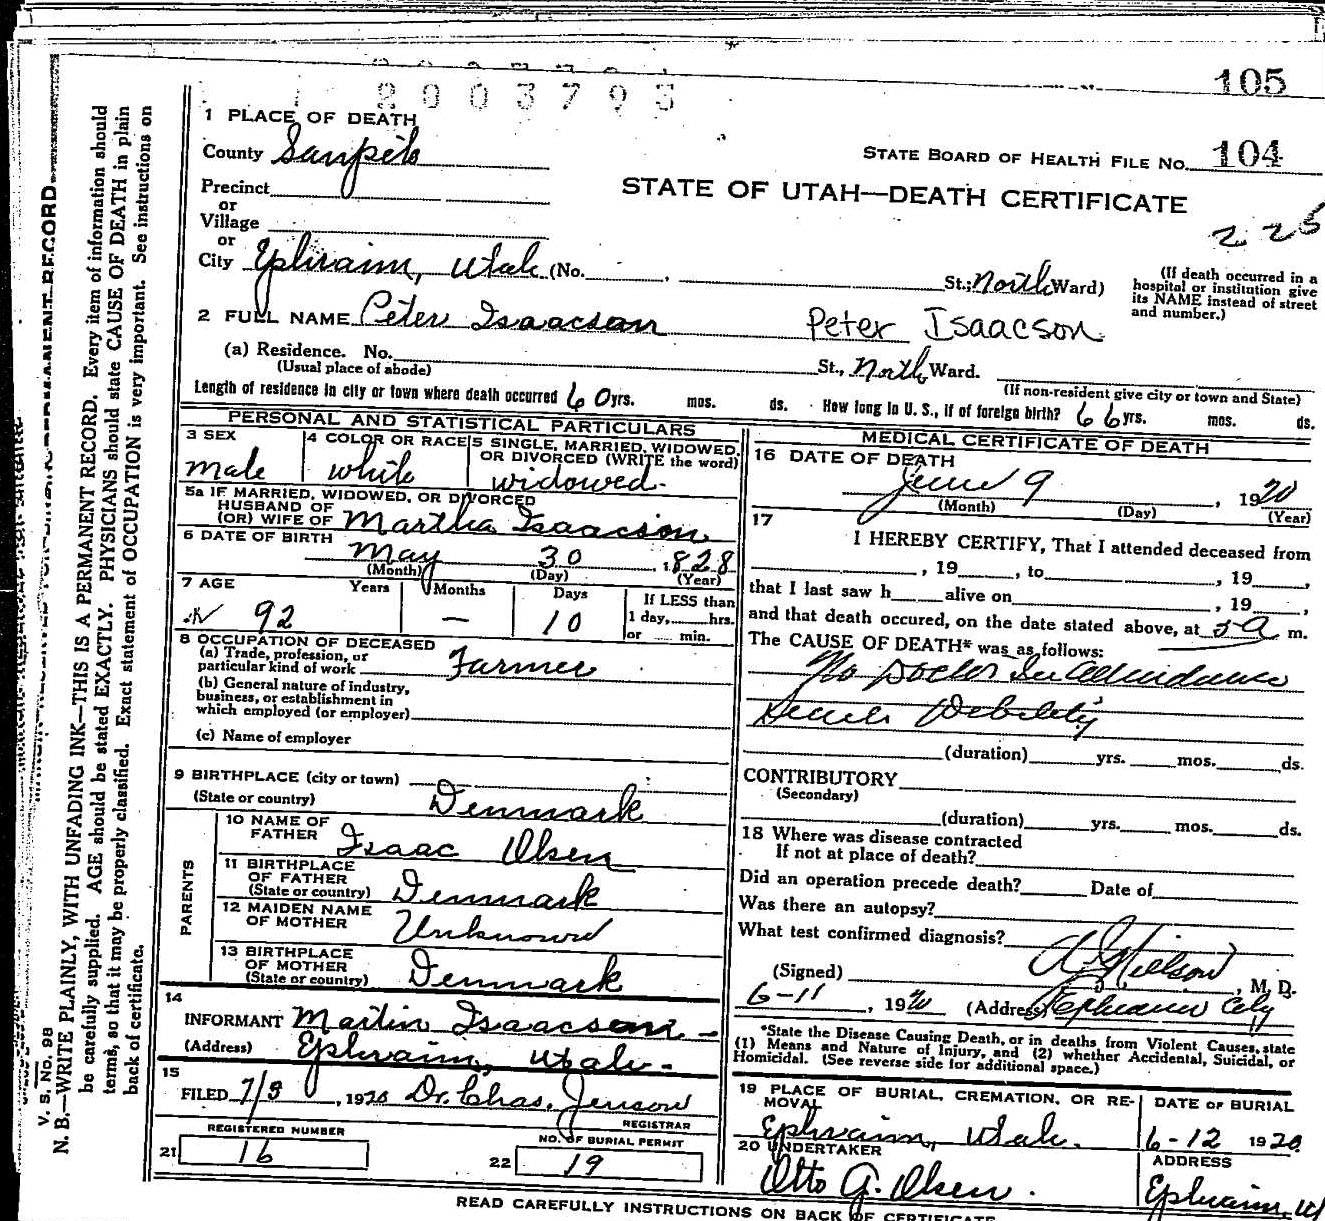 105
2003793
1 PLACE OF DEATH
County Sanpete
STATE BOARD OF HEALTH FILE No. 104
Precinct
or
Village
or
STATE OF UTAH—DEATH CERTIFICATE
225
City Ephraim, Utah (No. , St.; North Ward)
(If death occurred in a hospital or institution give its NAME instead of street and number.)
2 FULL NAME Peter Isaacson Peter Isaacson
(a) Residence. No. St., North Ward.
(Usual place of abode)
(If non-resident give city or town and State)
Length of residence in city or town where death occurred 60 yrs. mos. ds. How long in U. S., if of foreign birth? 66 yrs. mos. ds.
PERSONAL AND STATISTICAL PARTICULARS
3 SEX
male
4 COLOR OR RACE
white
5 SINGLE, MARRIED, WIDOWED, OR DIVORCED (WRITE the word)
widowed.
5a IF MARRIED, WIDOWED, OR DIVORCED
HUSBAND OF
(OR) WIFE OF Martha Isaacson
6 DATE OF BIRTH
May 30, 1828
(Month) (Day) (Year)
7 AGE Years Months Days
92 — 10
If LESS than
1 day, hrs.
or min.
8 OCCUPATION OF DECEASED
(a) Trade, profession, or
particular kind of work Farmer
(b) General nature of industry,
business, or establishment in
which employed (or employer)
(c) Name of employer
9 BIRTHPLACE (city or town)
(State or country) Denmark
PARENTS
10 NAME OF
FATHER Isaac Olsen
11 BIRTHPLACE
OF FATHER
(State or country) Denmark
12 MAIDEN NAME
OF MOTHER Unknown
13 BIRTHPLACE
OF MOTHER
(State or country) Denmark
14
INFORMANT Martin Isaacson
(Address) Ephraim, Utah
15
FILED 7/3, 1920 Dr. Chas. Jenson
REGISTRAR
REGISTERED NUMBER
21 16
NO. OF BURIAL PERMIT
22 19
MEDICAL CERTIFICATE OF DEATH
16 DATE OF DEATH
June 9, 1920
(Month) (Day) (Year)
17
I HEREBY CERTIFY, That I attended deceased from
, 19 , to , 19 ,
that I last saw h alive on , 19 ,
and that death occured, on the date stated above, at 5 a m.
The CAUSE OF DEATH* was as follows:
No Doctor In Attendance
Senile Debility
(duration) yrs. mos. ds.
CONTRIBUTORY
(Secondary)
(duration) yrs. mos. ds.
18 Where was disease contracted
If not at place of death?
Did an operation precede death? Date of
Was there an autopsy?
What test confirmed diagnosis?
(Signed) Nielson, M. D.
6-11, 1920 (Address) Ephraim City
*State the Disease Causing Death, or in deaths from Violent Causes, state
(1) Means and Nature of Injury, and (2) whether Accidental, Suicidal, or
Homicidal. (See reverse side for additional space.)
19 PLACE OF BURIAL, CREMATION, OR RE-
MOVAL
Ephraim, Utah.
DATE OF BURIAL
6-12 1920
20 UNDERTAKER
Otto G. Olsen.
ADDRESS
Ephraim, Ut
READ CAREFULLY INSTRUCTIONS ON BACK OF CERTIFICATE
V. S. No. 98
N. B.—WRITE PLAINLY, WITH UNFADING INK—THIS IS A PERMANENT RECORD. Every item of information should
be carefully supplied. AGE should be stated EXACTLY. PHYSICIANS should state CAUSE OF DEATH in plain
terms, so that it may be properly classified. Exact statement of OCCUPATION is very important. See instructions on
back of certificate.